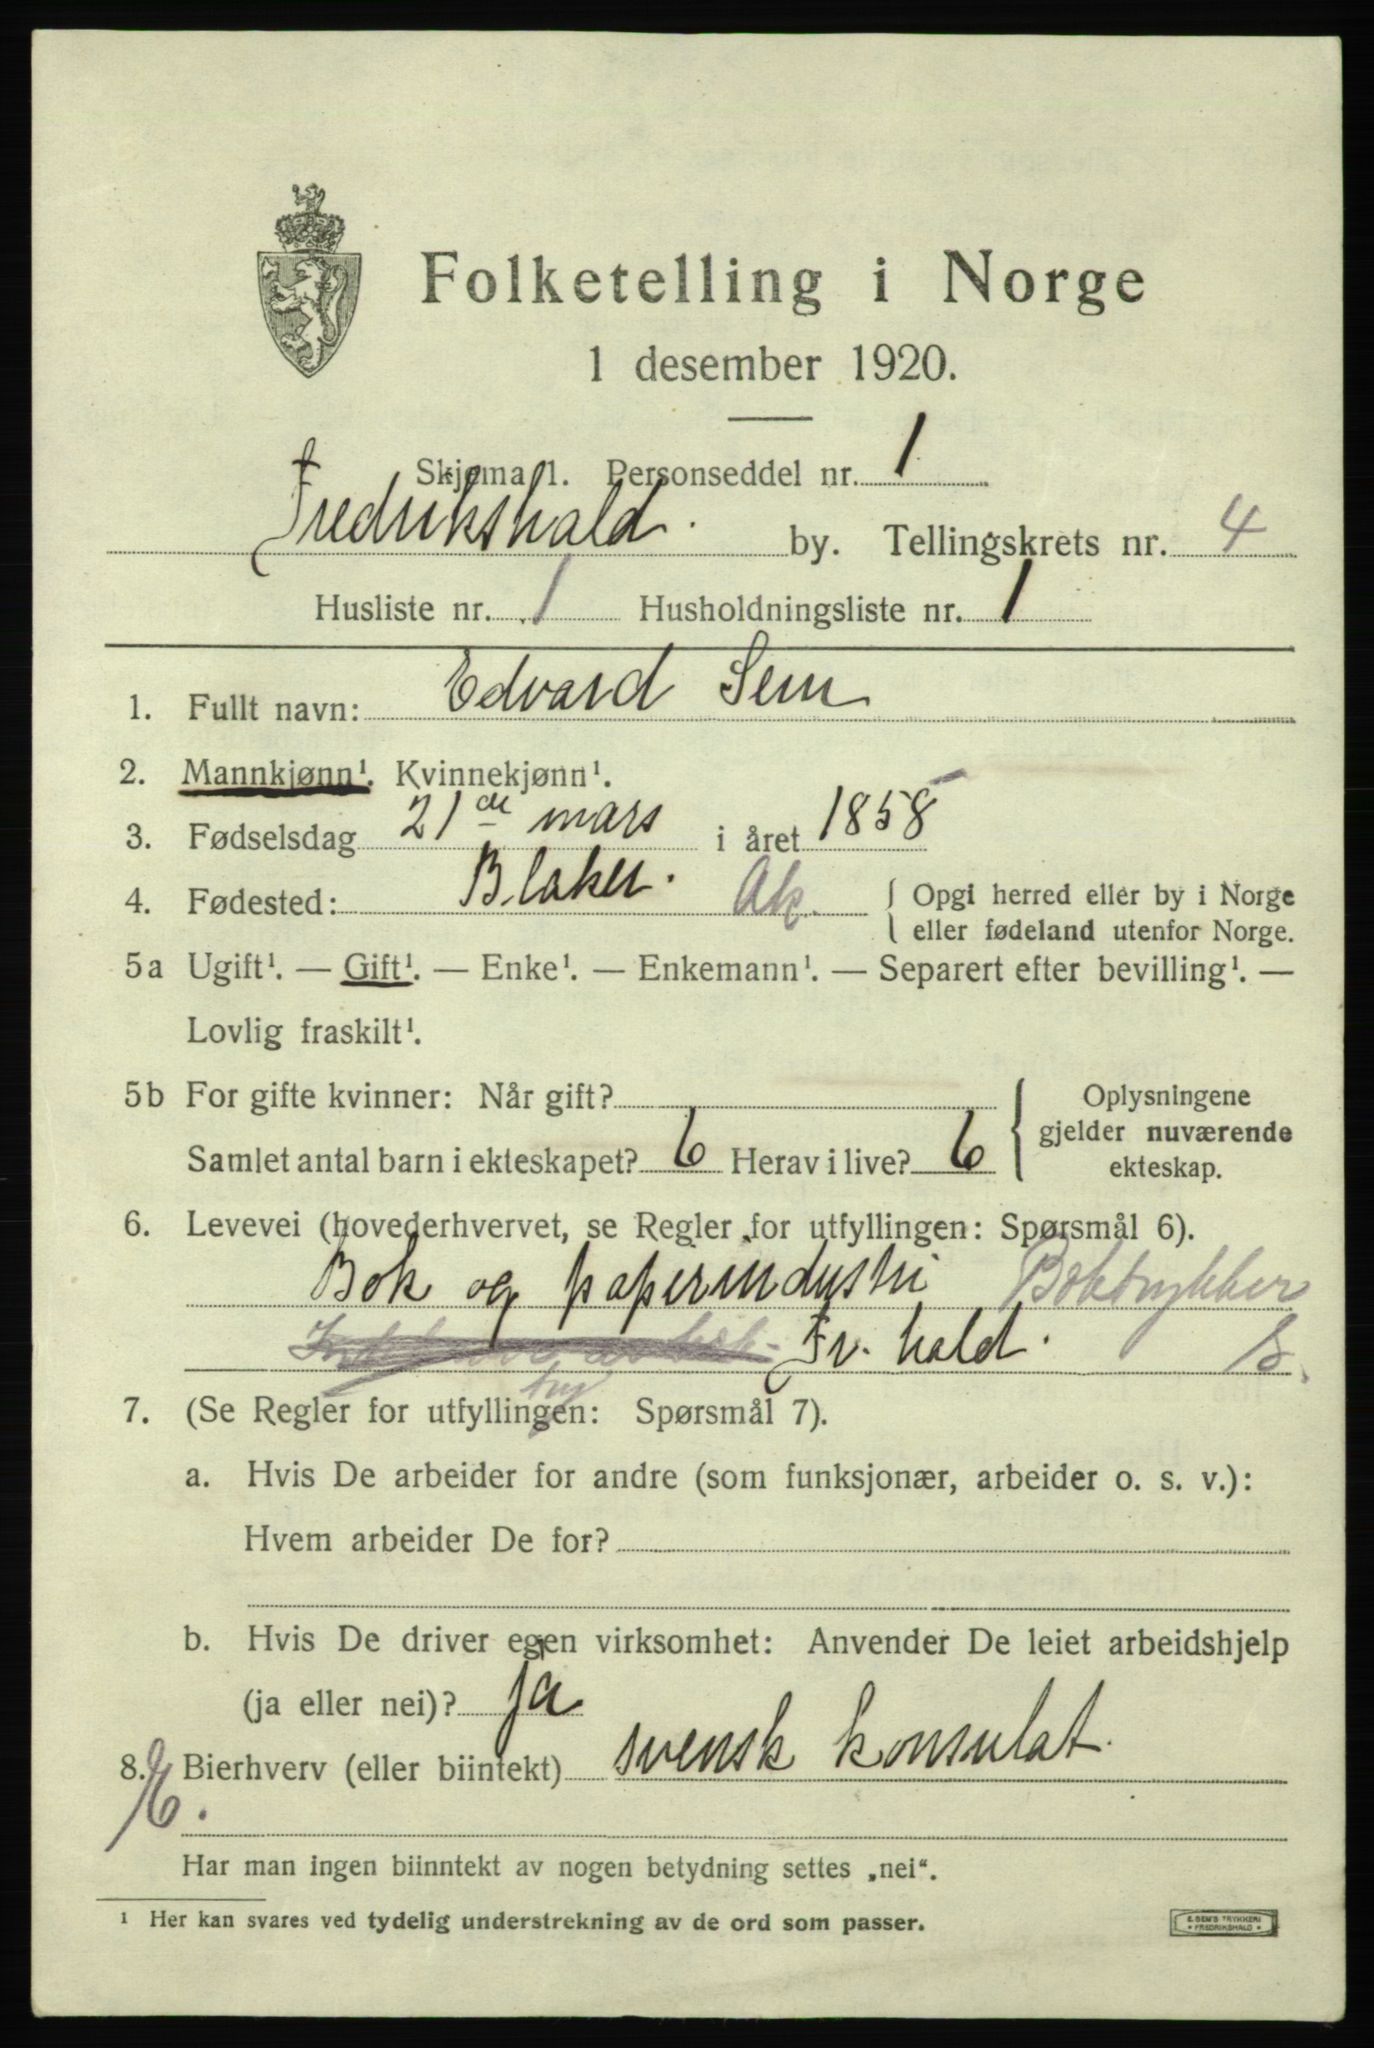 Folketelling i Norge
1 desember 1920.
Skjema 1. Personseddel nr. 1
Fredrikshald. by. Tellingskrets nr. 4
Husliste nr. 1 Husholdningsliste nr. 1
1. Fullt navn: Edvard Sem
2. Mannkjønn¹. Kvinnekjønn¹.
3. Fødselsdag 21de mars i året 1858
4. Fødested: Blaker. Ak. { Opgi herred eller by i Norge
eller fødeland utenfor Norge.
5a Ugift¹. — Gift¹. — Enke¹. — Enkemann¹. — Separert efter bevilling¹. —
Lovlig fraskilt¹.
5b For gifte kvinner: Når gift?
Samlet antal barn i ekteskapet? 6 Herav i live? 6
{ Oplysningene
gjelder nuværende
ekteskap.
6. Levevei (hovederhvervet, se Regler for utfyllingen: Spørsmål 6).
Bok og papirindustri Boktrykker
Fr.hald. S.
7. (Se Regler for utfyllingen: Spørsmål 7).
a. Hvis De arbeider for andre (som funksjonær, arbeider o. s. v.):
Hvem arbeider De for?
b. Hvis De driver egen virksomhet: Anvender De leiet arbeidshjelp
(ja eller nei)? ja
8. Bierhverv (eller biintekt) svensk konsulat.
Har man ingen biinntekt av nogen betydning settes „nei“.
¹ Her kan svares ved tydelig understrekning av de ord som passer.
E. SEM'S TRYKKERI
* FREDRIKSHALD *